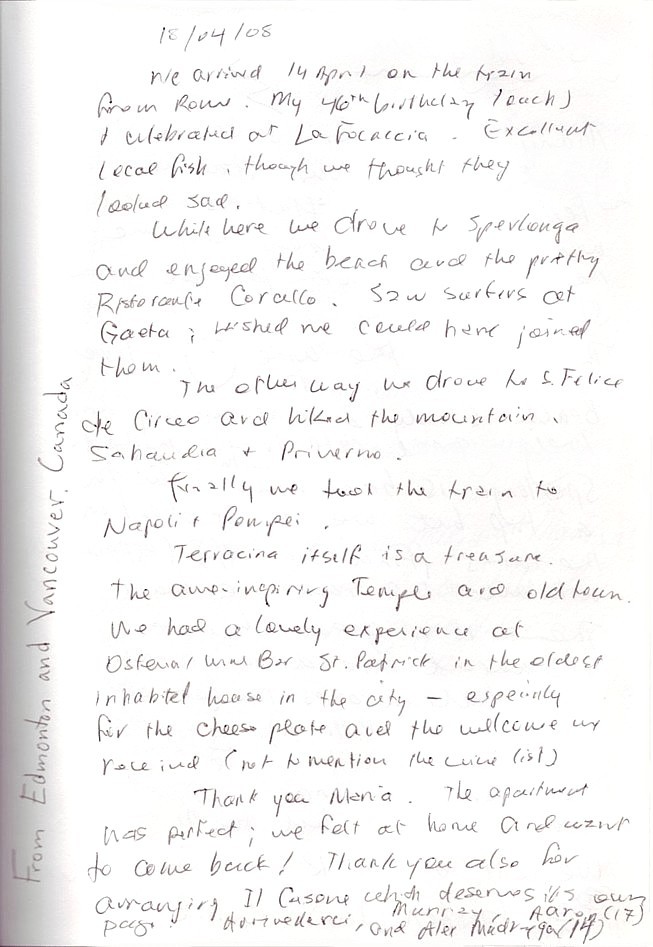 18/04/08
We arrived 14 April on the train
from Rome. My 46th birthday (ouch)
+ celebrated at La Focaccia. Excellent
local fish, though we thought they
looked sad.
While here we drove to Sperlonga
and enjoyed the beach and the pretty
Ristorante Corallo. Saw surfers at
Gaeta; wished we could have joined
them.
The other way we drove to S. Felice
de Circeo and hiked the mountain.
Sabaudia + Priverno.
Finally we took the train to
Napoli + Pompei.
Terracina itself is a treasure.
The awe-inspiring Temple and old town.
We had a lovely experience at
Osteria/Wine Bar St. Patrick in the oldest
inhabited house in the city – especially
for the cheese plate and the welcome we
received (not to mention the wine list)
Thank you Maria. The apartment
was perfect; we felt at home and want
to come back! Thank you also for
arranging Il Casone which deserves its own
page! Arrivederci, Murray, Aaron (17)
and Alex (14)
From Edmonton and Vancouver, Canada